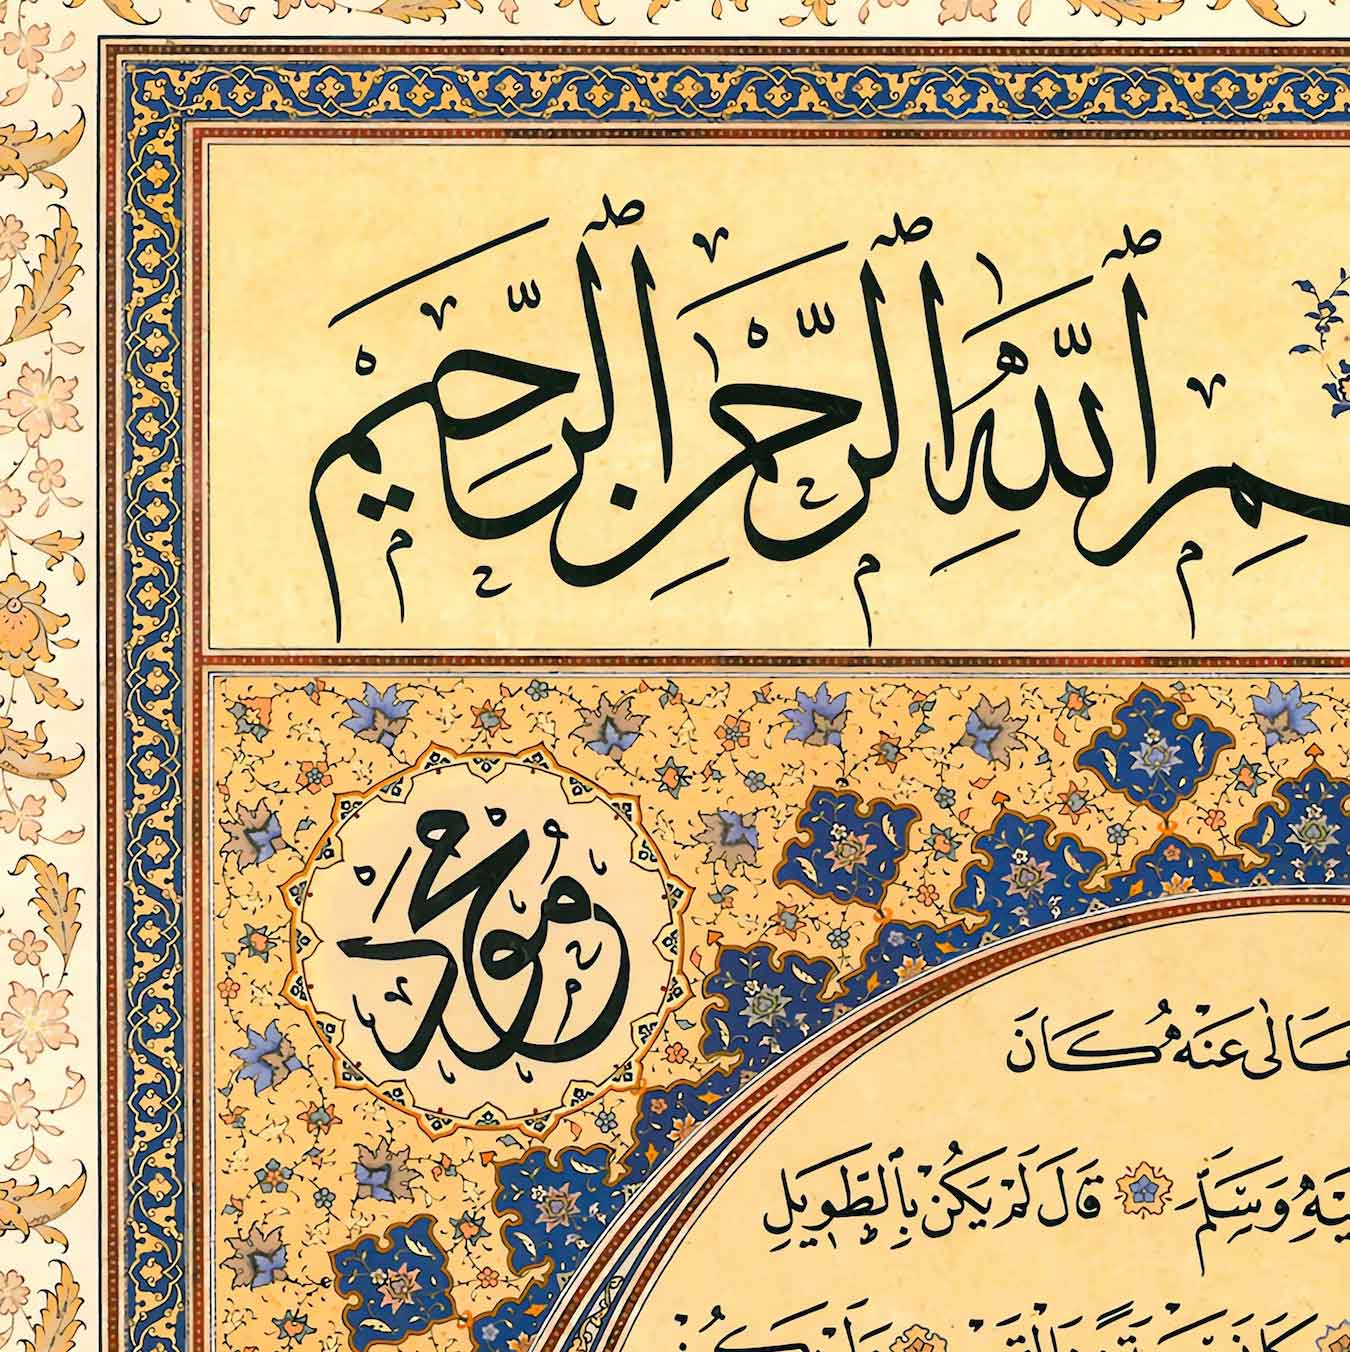 ـمِ ٱللّٰهِ ٱلرَّحْمٰنِ ٱلرَّحِيمِ
مَحْمُودٌ
ـعَالٰى عَنْهُ كَانَ
ـيْهِ وَسَلَّمَ قَالَ لَمْ يَكُنْ بِٱلطَّوِيلِ